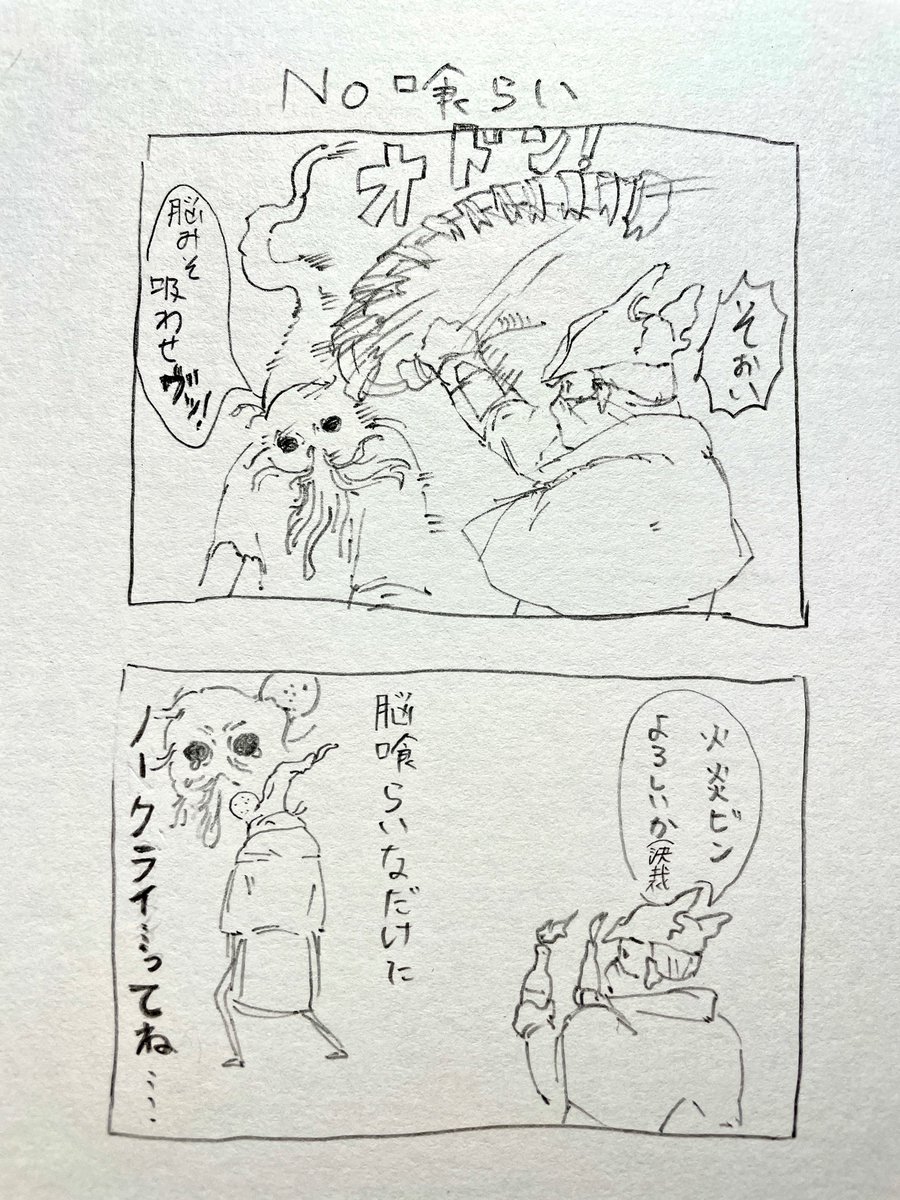 No喰らい
オドン!
そおい
脳みそ
吸わせ
ヴッ!
火炎ビン
よろしいか(決裁)
脳喰らいなだけに
ノークライ…ってね……